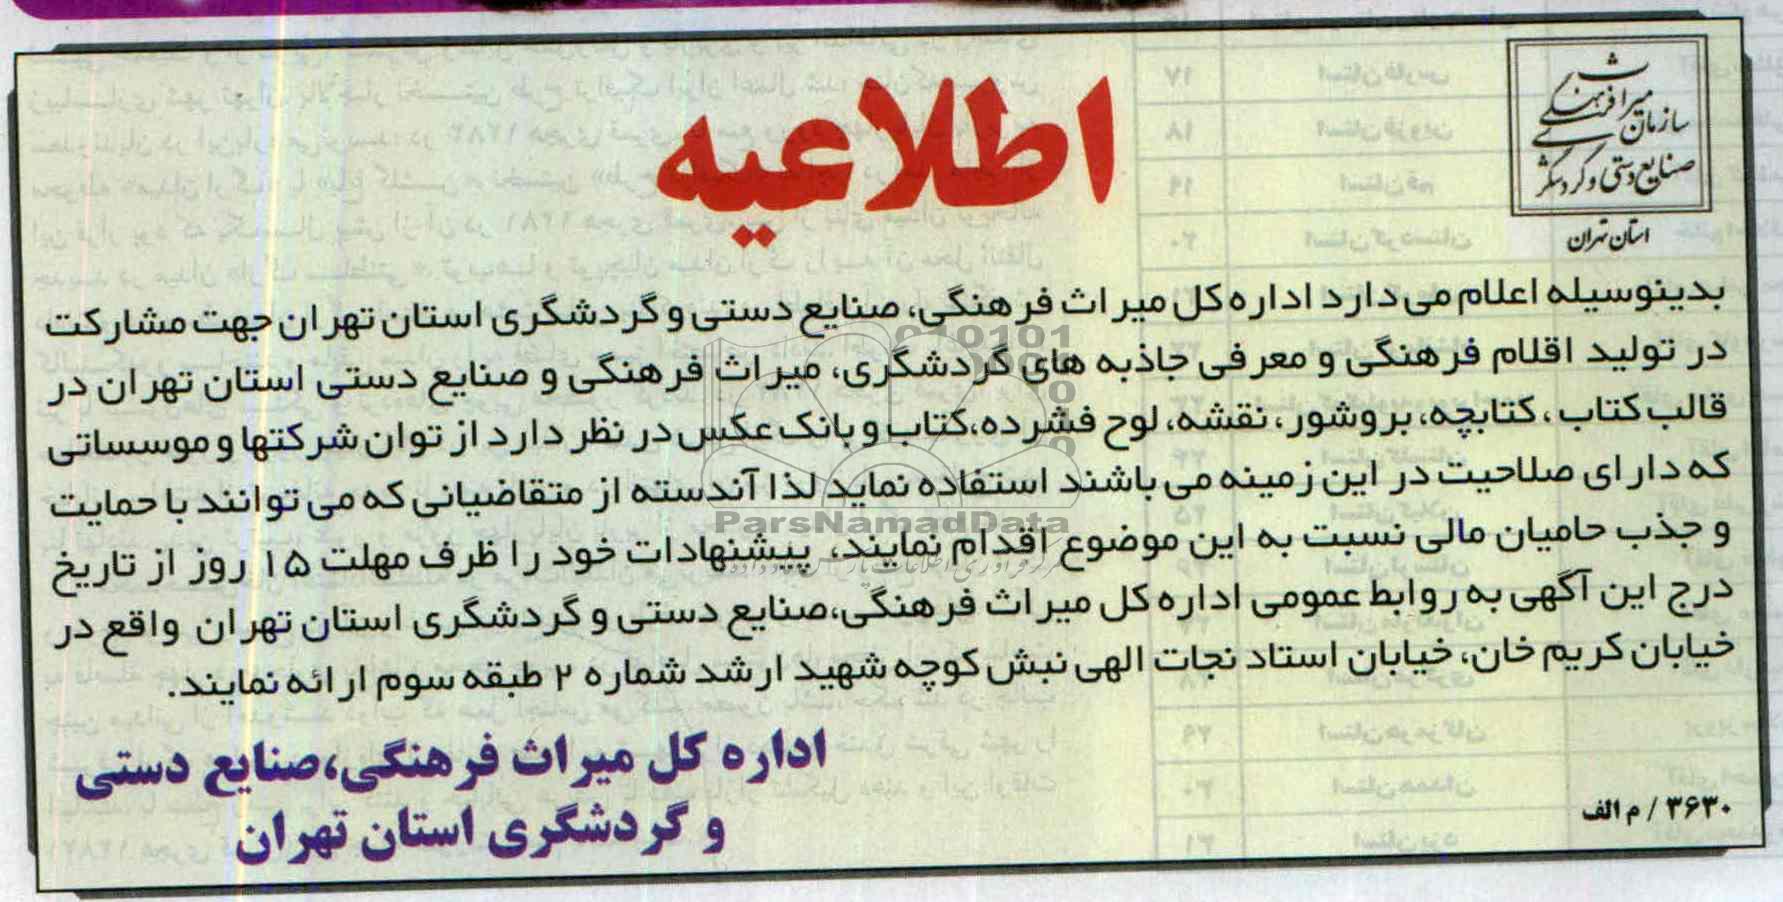 سازمان میراث فرهنگی
صنایع دستی و گردشگری
استان تهران
اطلاعیه
بدینوسیله اعلام می دارد اداره کل میراث فرهنگی، صنایع دستی و گردشگری استان تهران جهت مشارکت
در تولید اقلام فرهنگی و معرفی جاذبه های گردشگری، میراث فرهنگی و صنایع دستی استان تهران در
قالب کتاب، کتابچه، بروشور، نقشه، لوح فشرده،کتاب و بانک عکس در نظر دارد از توان شرکتها و موسساتی
که دارای صلاحیت در این زمینه می باشند استفاده نماید لذا آندسته از متقاضیانی که می توانند با حمایت
و جذب حامیان مالی نسبت به این موضوع اقدام نمایند، پیشنهادات خود را ظرف مهلت ۱۵ روز از تاریخ
درج این آگهی به روابط عمومی اداره کل میراث فرهنگی،صنایع دستی و گردشگری استان تهران واقع در
خیابان کریم خان، خیابان استاد نجات الهی نبش کوچه شهید ارشد شماره ۲ طبقه سوم ارائه نمایند.
اداره کل میراث فرهنگی،صنایع دستی
و گردشگری استان تهران
۳۶۳۰ / م الف
ParsNamadData